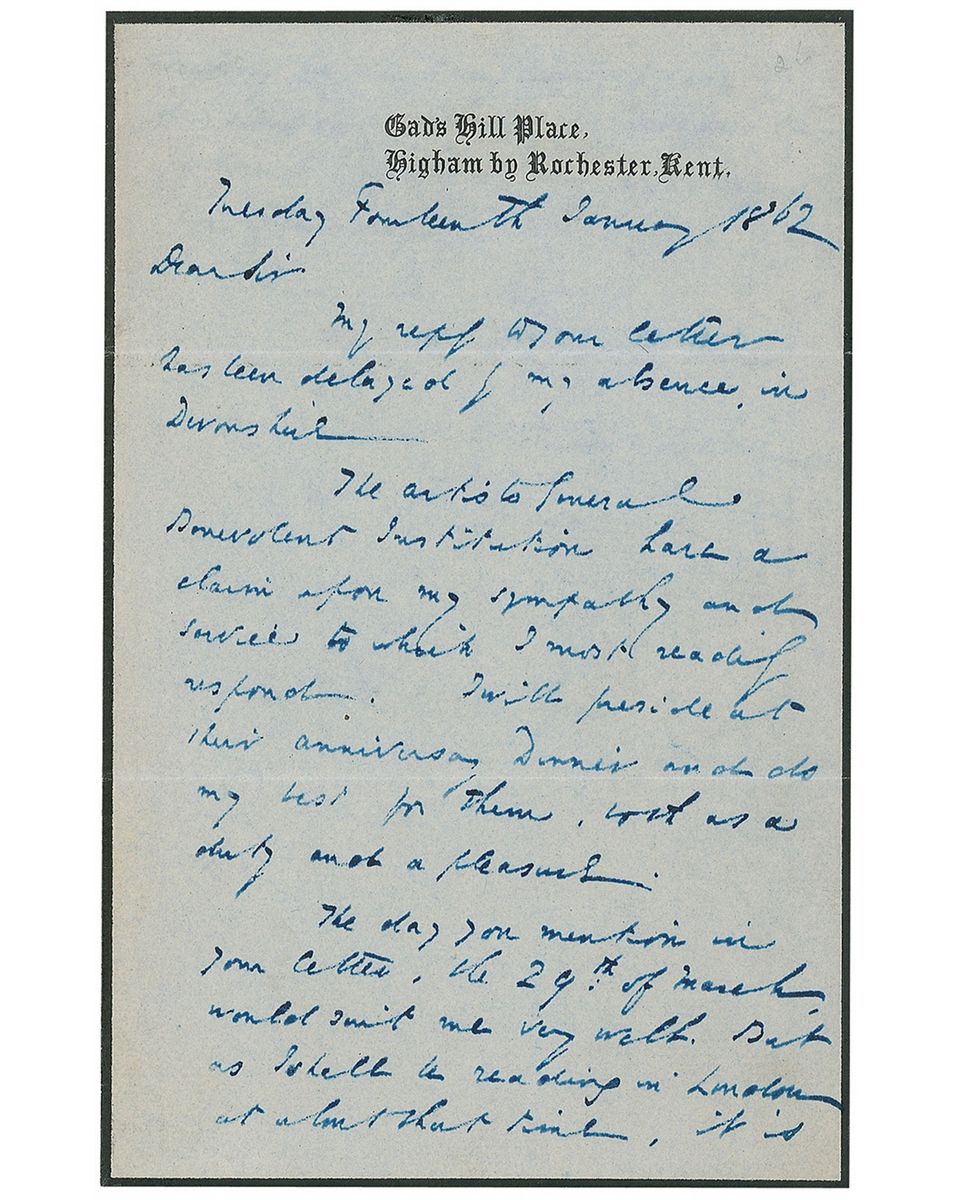 26
Gad's Hill Place,
Higham by Rochester, Kent.
Tuesday Fourteenth January 1862
Dear Sir
My reply to your letter
has been delayed by my absence, in
Devonshire
The artists General
Benevolent Institution have a
claim upon my sympathy and
service to which I most readily
respond. I will preside at
their anniversary Dinner and do
my best for them, both as a
duty and a pleasure.
The day you mention in
your letter, the 29th. of March,
would suit me very well. But
as I shall be reading in London
at about that time, it is